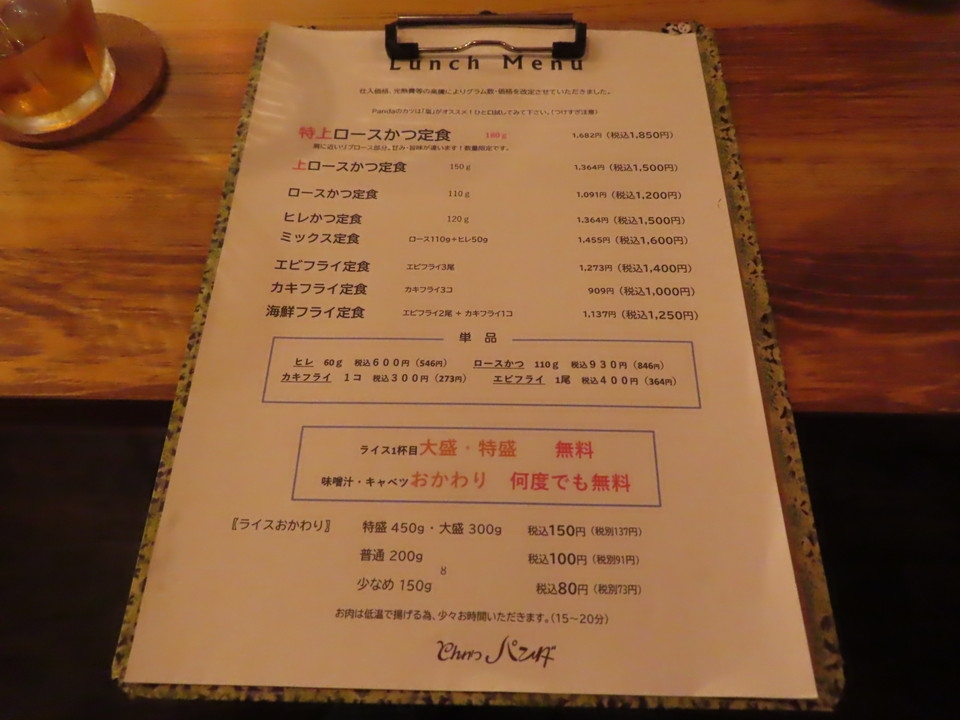 Lunch Menu
仕入価格、光熱費等の高騰によりグラム数・価格を改定させていただきました。
Pandaのカツは「塩」がオススメ!ひと口試してみて下さい。(つけすぎ注意)
特上ロースかつ定食 180g 1,682円(税込1,850円)
肩に近いリブロース部分。甘み・旨味が違います!数量限定です。
上ロースかつ定食 150g 1,364円(税込1,500円)
ロースかつ定食 110g 1,091円(税込1,200円)
ヒレかつ定食 120g 1,364円(税込1,500円)
ミックス定食 ロース110g+ヒレ50g 1,455円(税込1,600円)
エビフライ定食 エビフライ3尾 1,273円(税込1,400円)
カキフライ定食 カキフライ3コ 909円(税込1,000円)
海鮮フライ定食 エビフライ2尾 + カキフライ1コ 1,137円(税込1,250円)
単 品
ヒレ 60g 税込600円(546円) ロースかつ 110g 税込930円(846円)
カキフライ 1コ 税込300円(273円) エビフライ 1尾 税込400円(364円)
ライス1杯目大盛・特盛 無料
味噌汁・キャベツおかわり 何度でも無料
〖ライスおかわり〗 特盛 450g・大盛 300g 税込150円(税別137円)
普通 200g 税込100円(税別91円)
8
少なめ 150g 税込80円(税別73円)
お肉は低温で揚げる為、少々お時間いただきます。(15~20分)